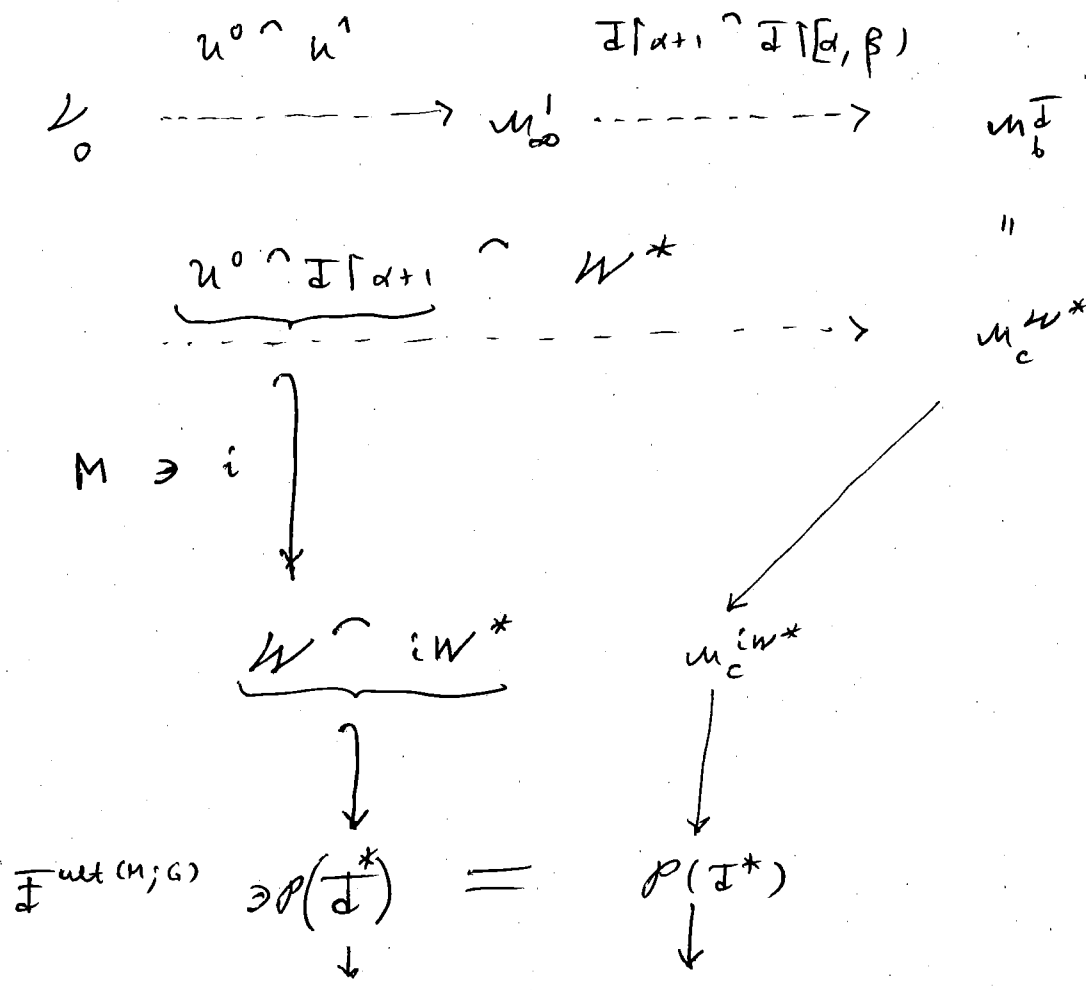 𝒰⁰ ⌢ 𝒰¹ 𝒯↾α+1 ⌢ 𝒯↾[α, β)
𝒩₀ ⇢ ℳ_∞^1 ⇢ ℳ_b^𝒯
𝒰⁰ ⌢ 𝒯↾α+1 ⌢ 𝒲* "
⇢ ℳ_c^𝒲*
M ∋ i
𝒲 ⌢ i𝒲* ℳ_c^{i𝒲*}
𝒯^{ult(M;G)} ∋ 𝒫(𝒯*) = 𝒫(𝒯*)